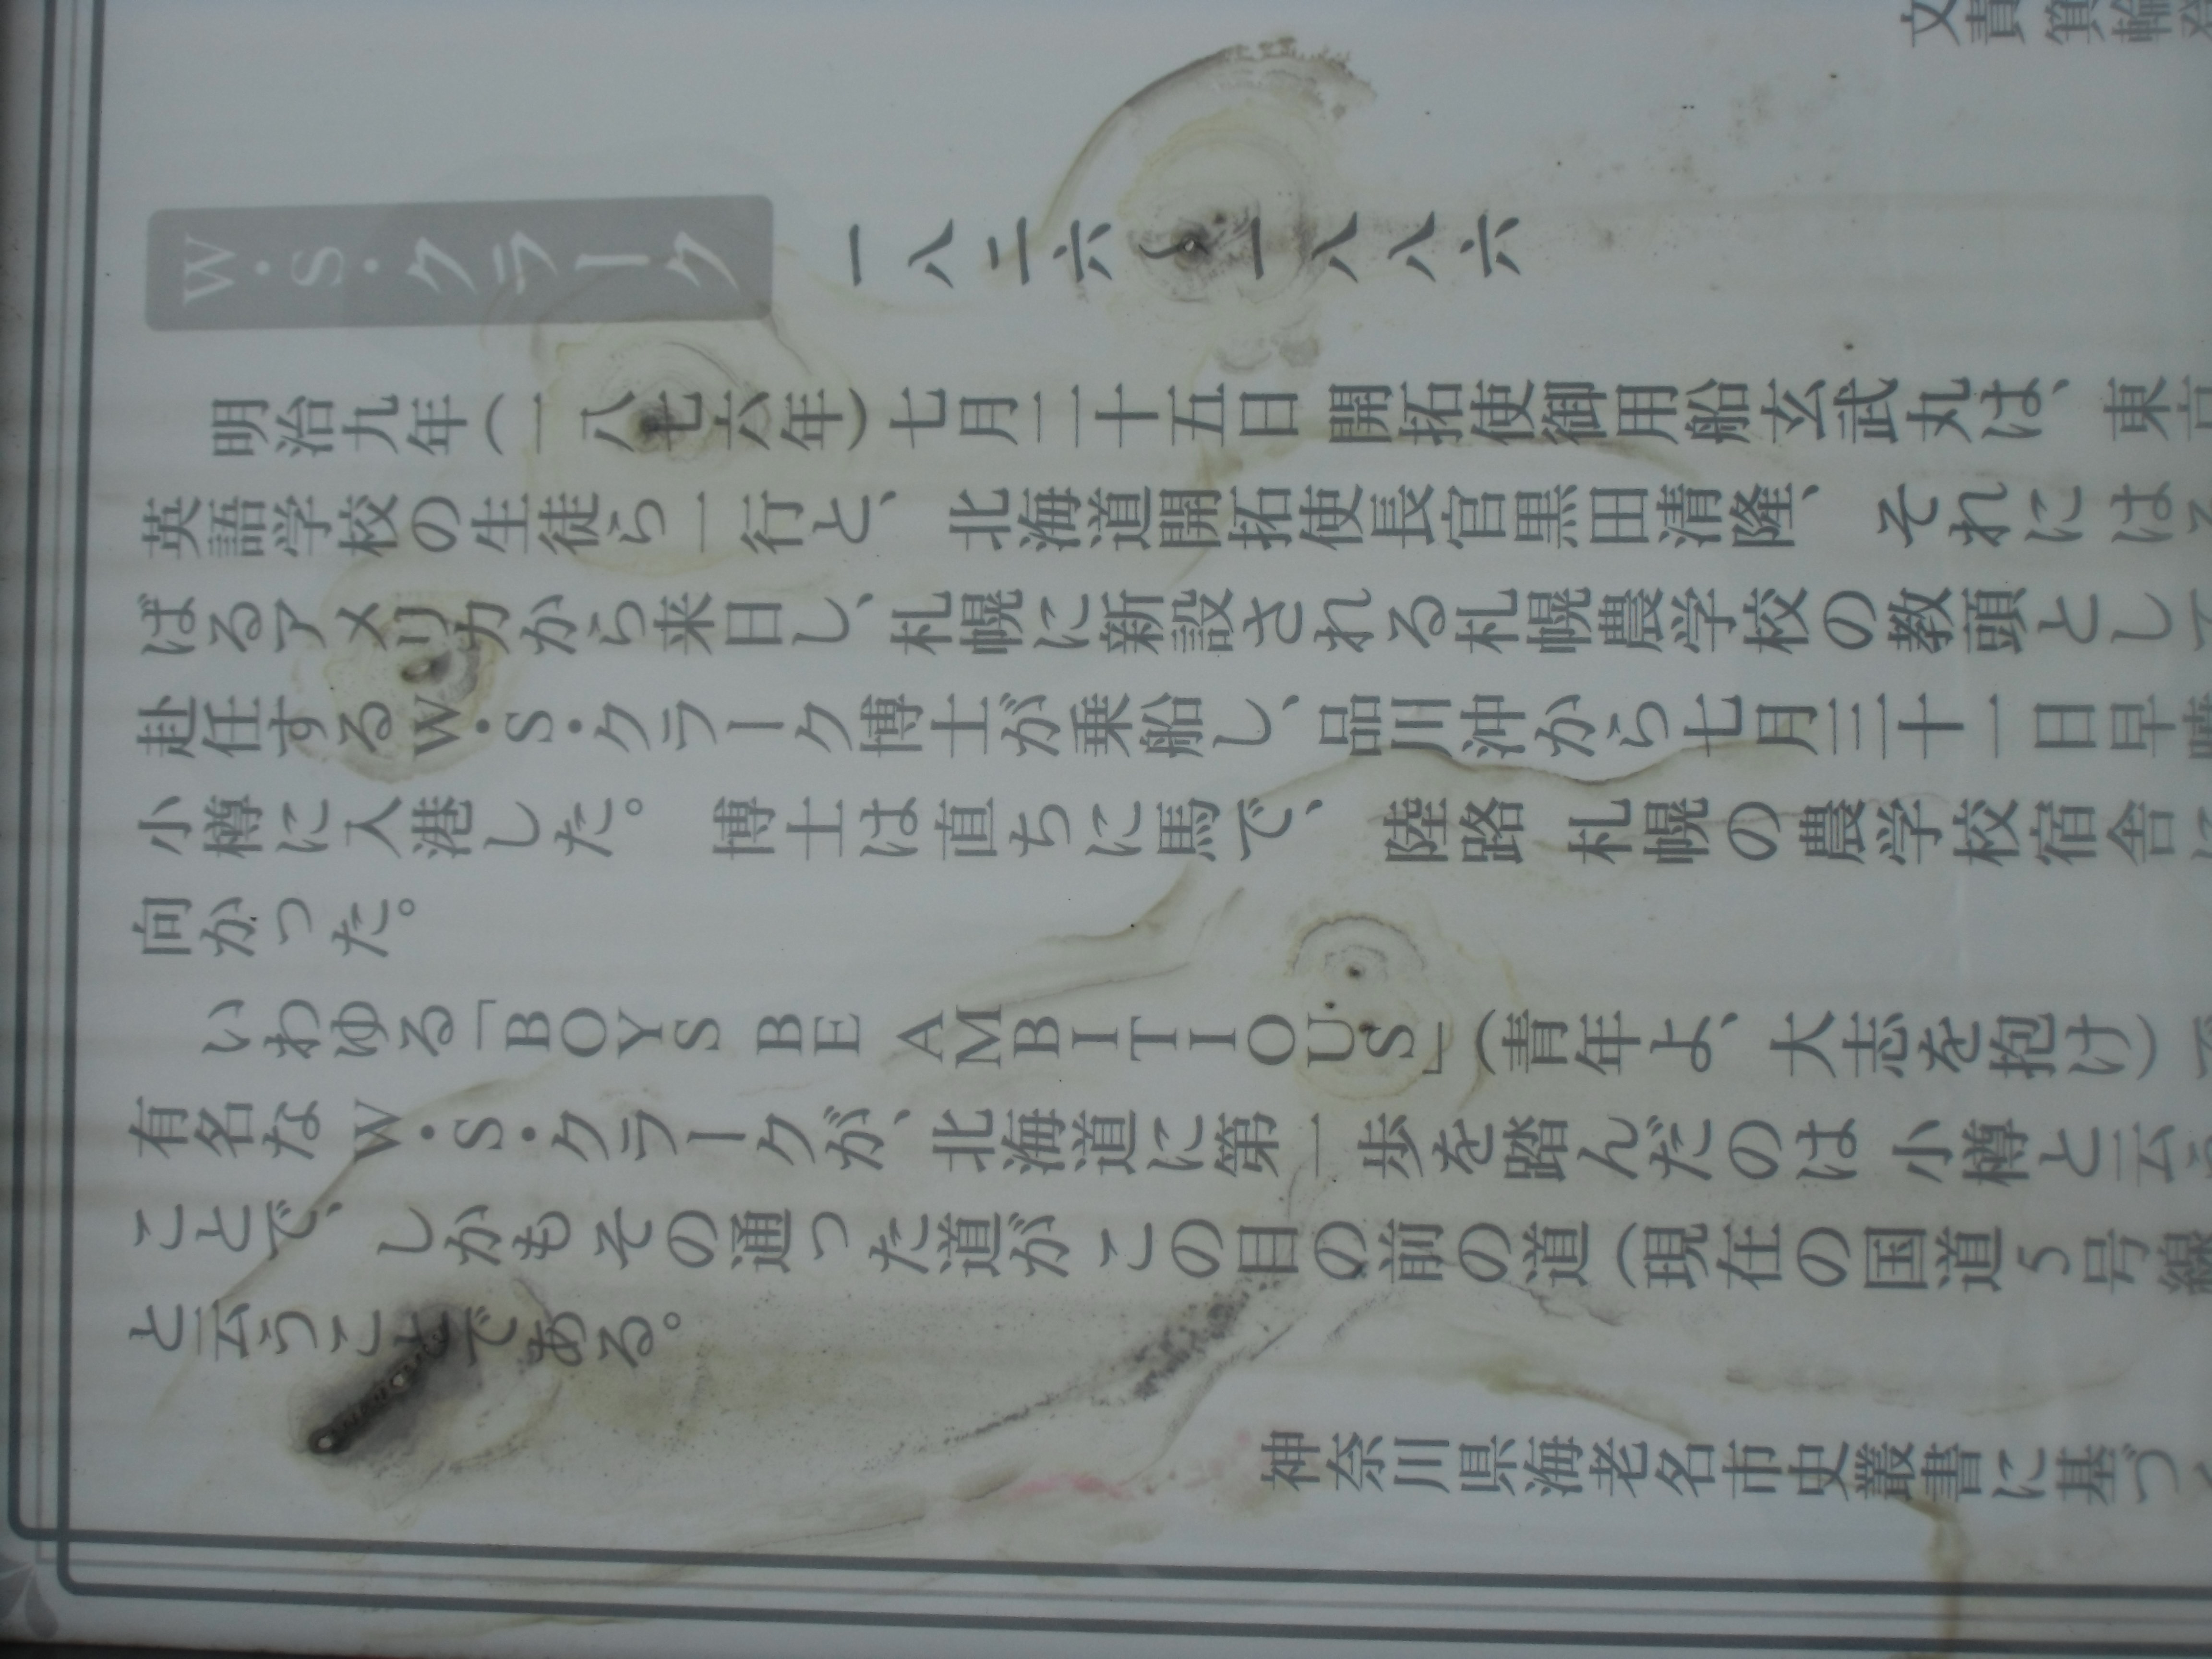 文責 箕輪
W・S・クラーク 一八二六〜一八八六
明治九年(一八七六年)七月二十五日 開拓使御用船玄武丸は、東京
英語学校の生徒ら一行と、北海道開拓使長官黒田清隆、それにはる
ばるアメリカから来日し、札幌に新設される札幌農学校の教頭として
赴任するW・S・クラーク博士が乗船し、品川沖から七月三十一日早
小樽に入港した。博士は直ちに馬で、陸路 札幌の農学校宿舎に
向かった。
いわゆる「BOYS BE AMBITIOUS」(青年よ、大志を抱け)で
有名なW・S・クラークが、北海道に第一歩を踏んだのは小樽と云う
ことで、しかもその通った道がこの目の前の道(現在の国道5号線
と云うことである。
神奈川県海老名市史叢書に基づく